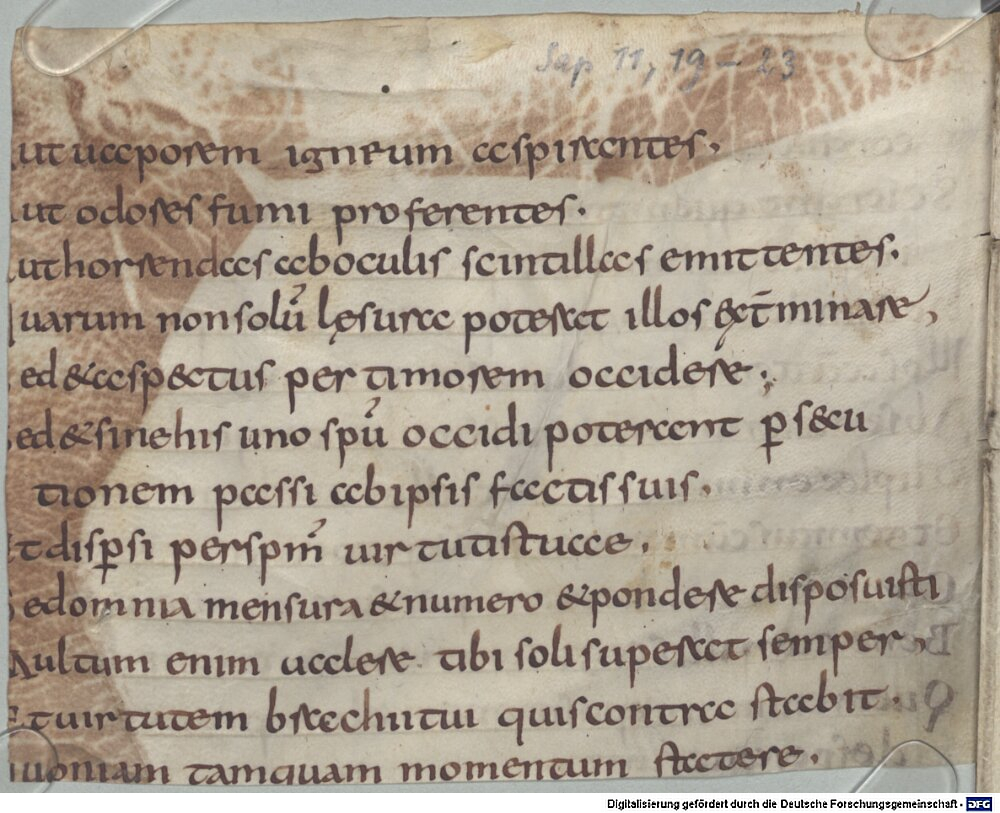 Sap 11, 19-23
ut uaporem igneum aspirantes.
ut odores fumi proferentes.
ut horrendas ab oculis scintillas emittentes.
uarum non solū lęsura poterat illos &xt̄minare,
ed & aspectus per timorem occidere;
ed & sine his uno spū occidi poterant p̱secu
tionem passi ab ipsis factis suis.
t disp̱si per spm̄ uirtutis tuae.
ed omnia mensura & numero & pondere disposuisti
Multum enim ualere tibi soli superat semper,
Et uirtutem brachii tui quis contra stabit.
uoniam tamquam momentum staterę.
Digitalisierung gefördert durch die Deutsche Forschungsgemeinschaft - DFG